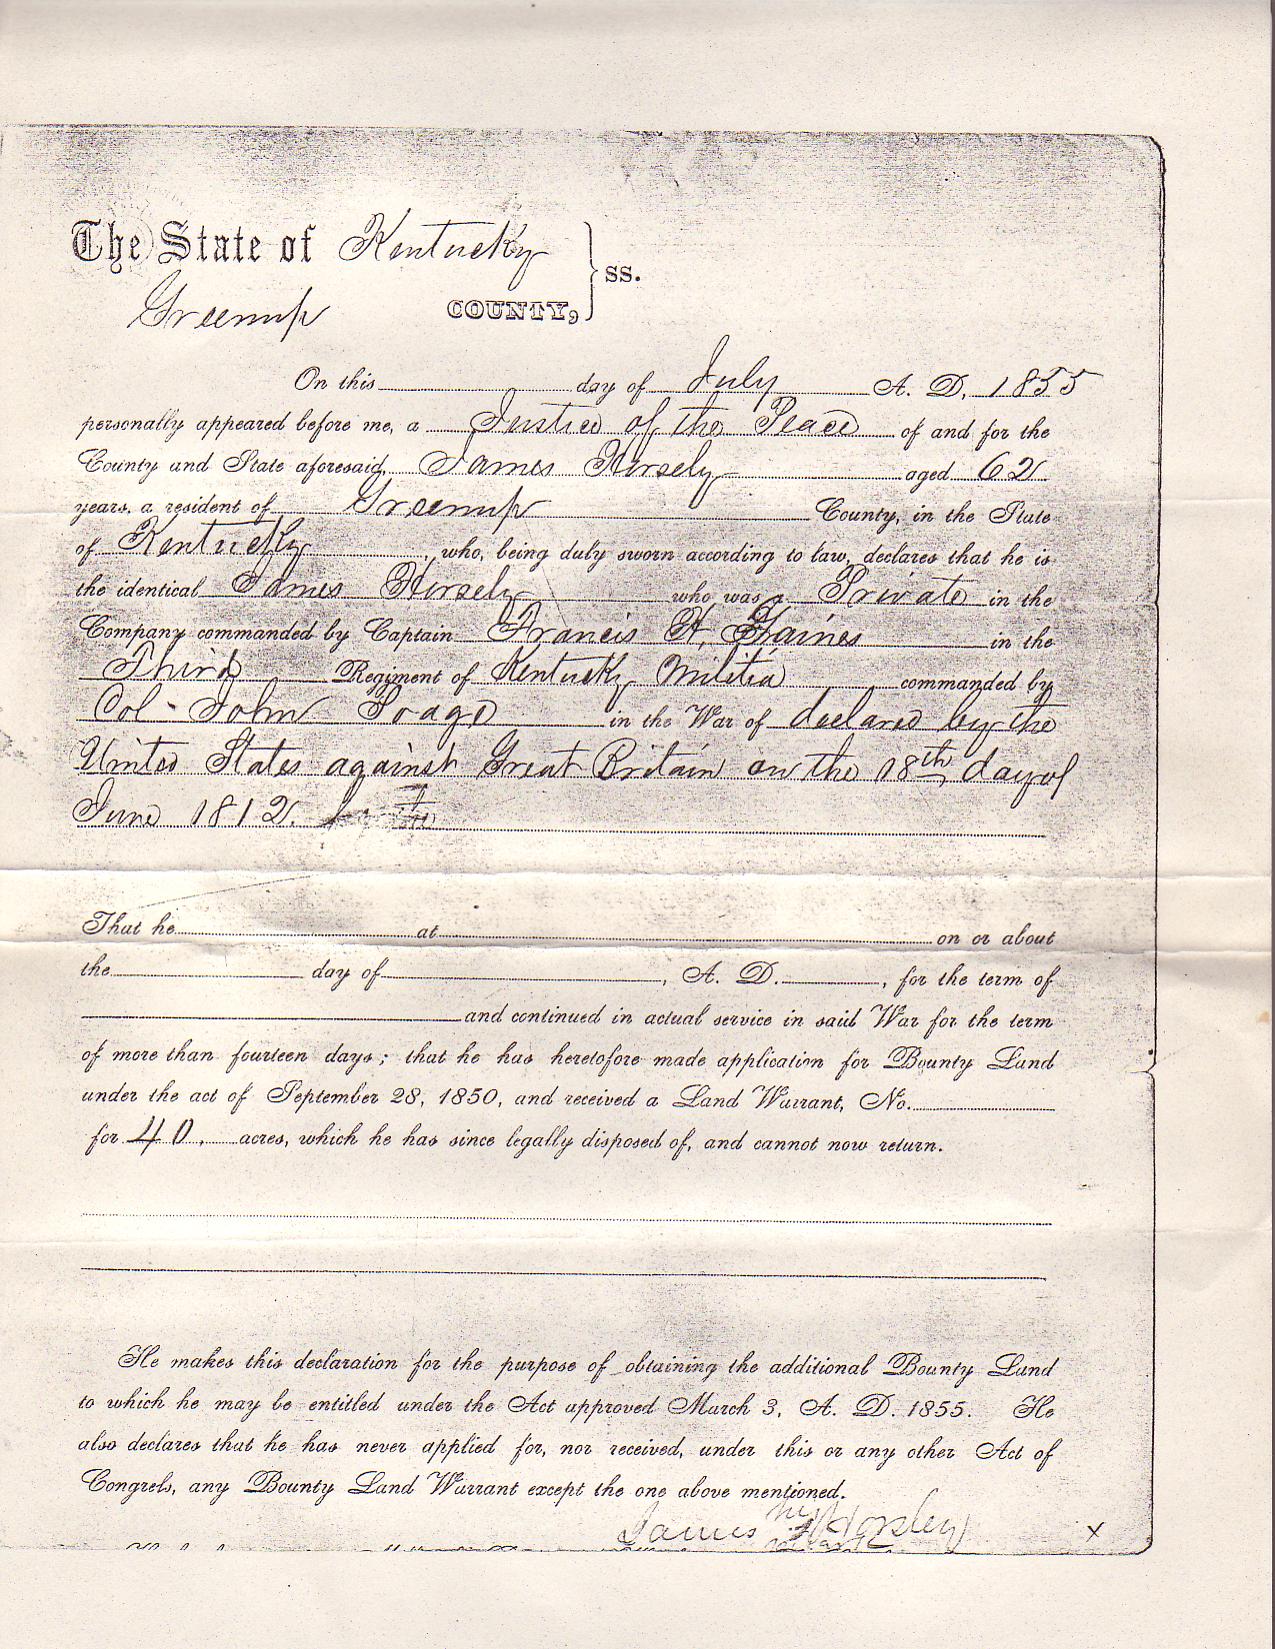 The State of Kentucky
Greenup COUNTY, } ss.
On this day of July A. D. 1855
personally appeared before me, a Justice of the Peace of and for the
County and State aforesaid, James Horsely aged 62
years, a resident of Greenup County, in the State
of Kentucky, who, being duly sworn according to law, declares that he is
the identical James Horsely who was a Private in the
Company commanded by Captain Francis H. Gaines in the
Third Regiment of Kentucky Militia commanded by
Col - John Poage in the War of declared by the
United States against Great Britain on the 18th day of
June 1812.
That he at on or about
the day of , A. D. , for the term of
and continued in actual service in said War for the term
of more than fourteen days; that he has heretofore made application for Bounty Land
under the act of September 28, 1850, and received a Land Warrant, No.
for 40, acres, which he has since legally disposed of, and cannot now return.
He makes this declaration for the purpose of obtaining the additional Bounty Land
to which he may be entitled under the Act approved March 3, A. D. 1855. He
also declares that he has never applied for, nor received, under this or any other Act of
Congress, any Bounty Land Warrant except the one above mentioned.
his
James Horsley X
mark